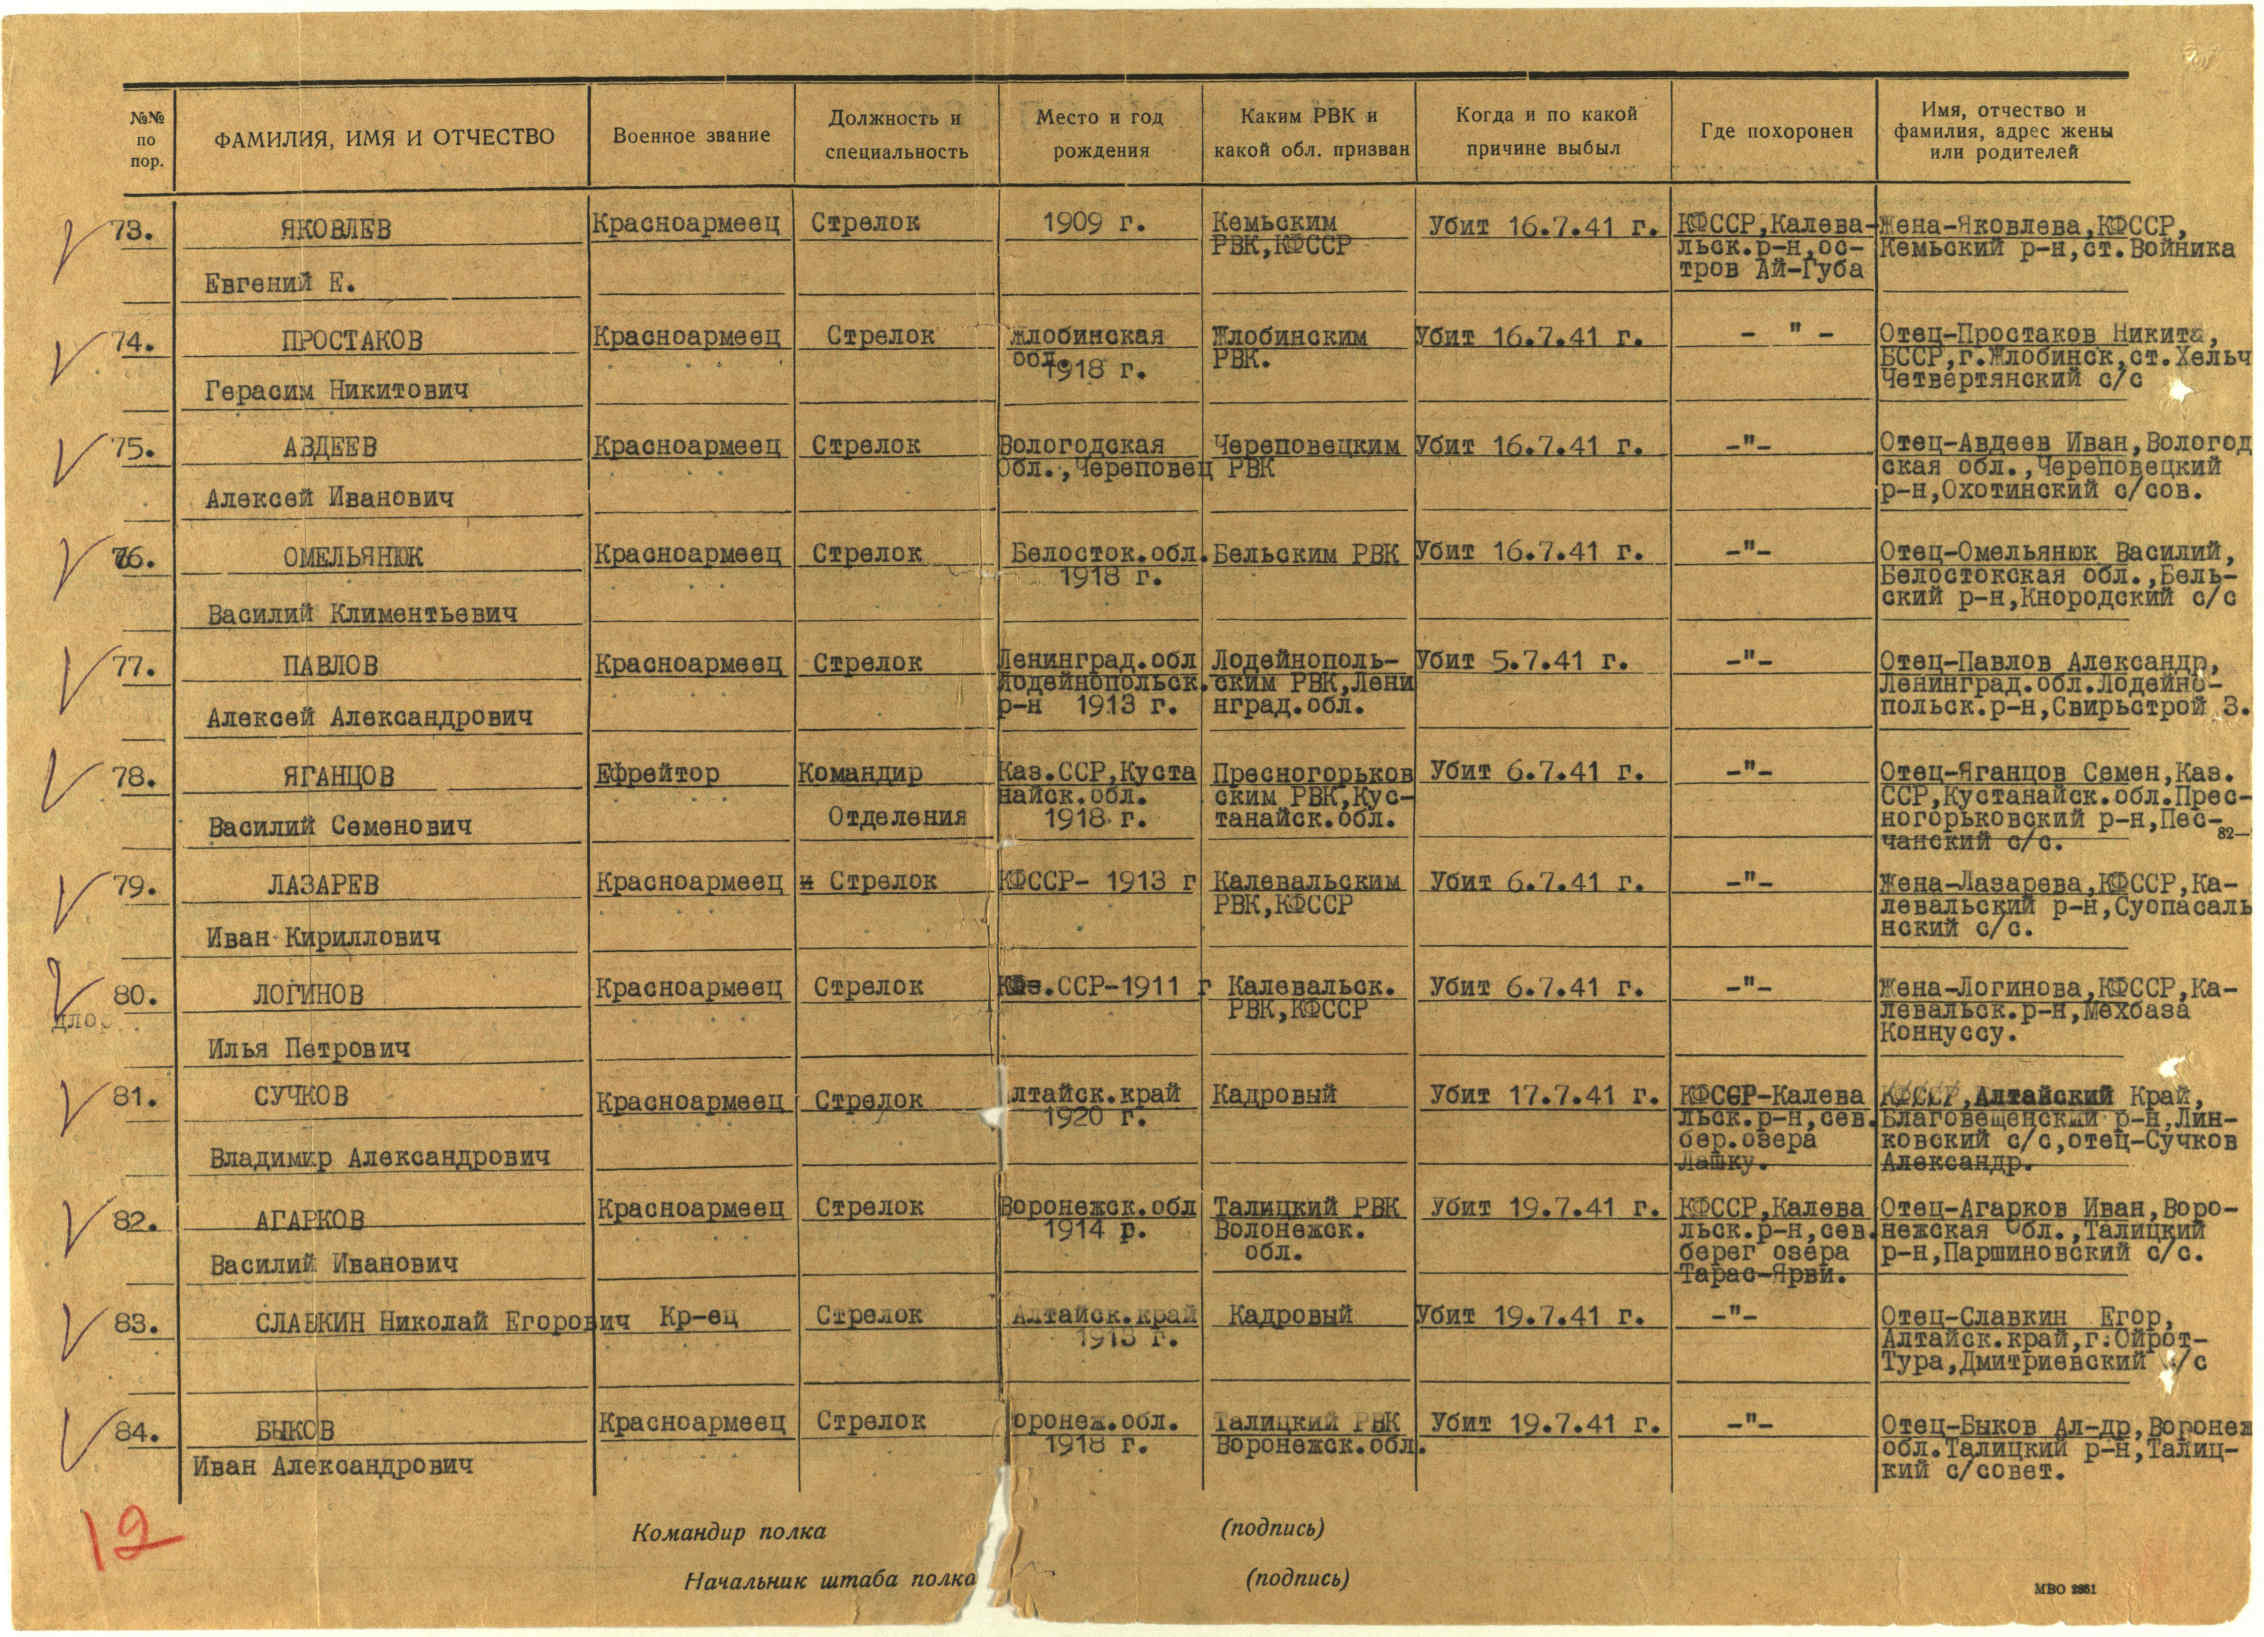 №№ по пор.
ФАМИЛИЯ, ИМЯ И ОТЧЕСТВО
Военное звание
Должность и специальность
Место и год рождения
Каким РВК и какой обл. призван
Когда и по какой причине выбыл
Где похоронен
Имя, отчество и фамилия, адрес жены или родителей
73.
ЯКОВЛЕВ
Евгений Е.
Красноармеец
Стрелок
1909 г.
Кемьским
РВК,КФССР
Убит 16.7.41 г.
КФССР,Калева-
льск.р-н,ос-
тров Ай-Губа
Жена-Яковлева,КФССР,
Кемьский р-н,ст.Войника
74.
ПРОСТАКОВ
Герасим Никитович
Красноармеец
Стрелок
Жлобинская
обл.
1918 г.
Жлобинским
РВК.
Убит 16.7.41 г.
- " -
Отец-Простаков Никита,
БССР,г.Жлобинск,ст.Хельч
Четвертянский с/с
75.
АВДЕЕВ
Алексей Иванович
Красноармеец
Стрелок
Вологодская
обл.,Череповец
Череповецким
РВК
Убит 16.7.41 г.
-"-
Отец-Авдеев Иван,Вологод
ская обл.,Череповецкий
р-н,Охотинский с/сов.
76.
ОМЕЛЬЯНЮК
Василий Климентьевич
Красноармеец
Стрелок
Белосток.обл.
1918 г.
Бельским РВК
Убит 16.7.41 г.
-"-
Отец-Омельянюк Василий,
Белостокская обл.,Бель-
ский р-н,Кнородский с/с
77.
ПАВЛОВ
Алексей Александрович
Красноармеец
Стрелок
Ленинград.обл
Лодейнопольск.
р-н 1913 г.
Лодейнополь-
ским РВК,Лени
нград.обл.
Убит 5.7.41 г.
-"-
Отец-Павлов Александр,
Ленинград.обл.Лодейно-
польск.р-н,Свирьстрой 3.
78.
ЯГАНЦОВ
Василий Семенович
Ефрейтор
Командир
Отделения
Каз.ССР,Куста
найск.обл.
1918 г.
Пресногорьков
ским РВК,Кус-
танайск.обл.
Убит 6.7.41 г.
-"-
Отец-Яганцов Семен,Каз.
ССР,Кустанайск.обл.Прес-
ногорьковский р-н,Пес-
чанский с/с.
82-
79.
ЛАЗАРЕВ
Иван Кириллович
Красноармеец
Стрелок
КФССР- 1913 г
Калевальским
РВК,КФССР
Убит 6.7.41 г.
-"-
Жена-Лазарева,КФССР,Ка-
левальский р-н,Суопасаль
нский с/с.
80.
ЛОГИНОВ
Илья Петрович
Красноармеец
Стрелок
.ССР-1911 г
Калевальск.
РВК,КФССР
Убит 6.7.41 г.
-"-
Жена-Логинова,КФССР,Ка-
левальск.р-н,Мехбаза
Коннуссу.
81.
СУЧКОВ
Владимир Александрович
Красноармеец
Стрелок
лтайск.край
1920 г.
Кадровый
Убит 17.7.41 г.
КФССР-Калева
льск.р-н,сев.
бер.озера
Лашку.
КФССР,Алтайский Край,
Благовещенский р-н,Лин-
ковский с/с,отец-Сучков
Александр.
82.
АГАРКОВ
Василий Иванович
Красноармеец
Стрелок
Воронежск.обл
1914 р.
Талицкий РВК
Волонежск.
обл.
Убит 19.7.41 г.
КФССР,Калева
льск.р-н,сев.
берег озера
Тарас-Ярви.
Отец-Агарков Иван,Воро-
нежская обл.,Талицкий
р-н,Паршиновский с/с.
83.
СЛАВКИН Николай Егорович
Кр-ец
Стрелок
Алтайск.край
1913 г.
Кадровый
Убит 19.7.41 г.
-"-
Отец-Славкин Егор,
Алтайск.край,г.Ойрот-
Тура,Дмитриевский с/с
84.
БЫКОВ
Иван Александрович
Красноармеец
Стрелок
оронеж.обл.
1918 г.
Талицкий РВК
Воронежск.обл.
Убит 19.7.41 г.
-"-
Отец-Быков Ал-др,Воронеж
обл.Талицкий р-н,Талиц-
кий с/совет.
12
Командир полка
(подпись)
Начальник штаба полка
(подпись)
МВО